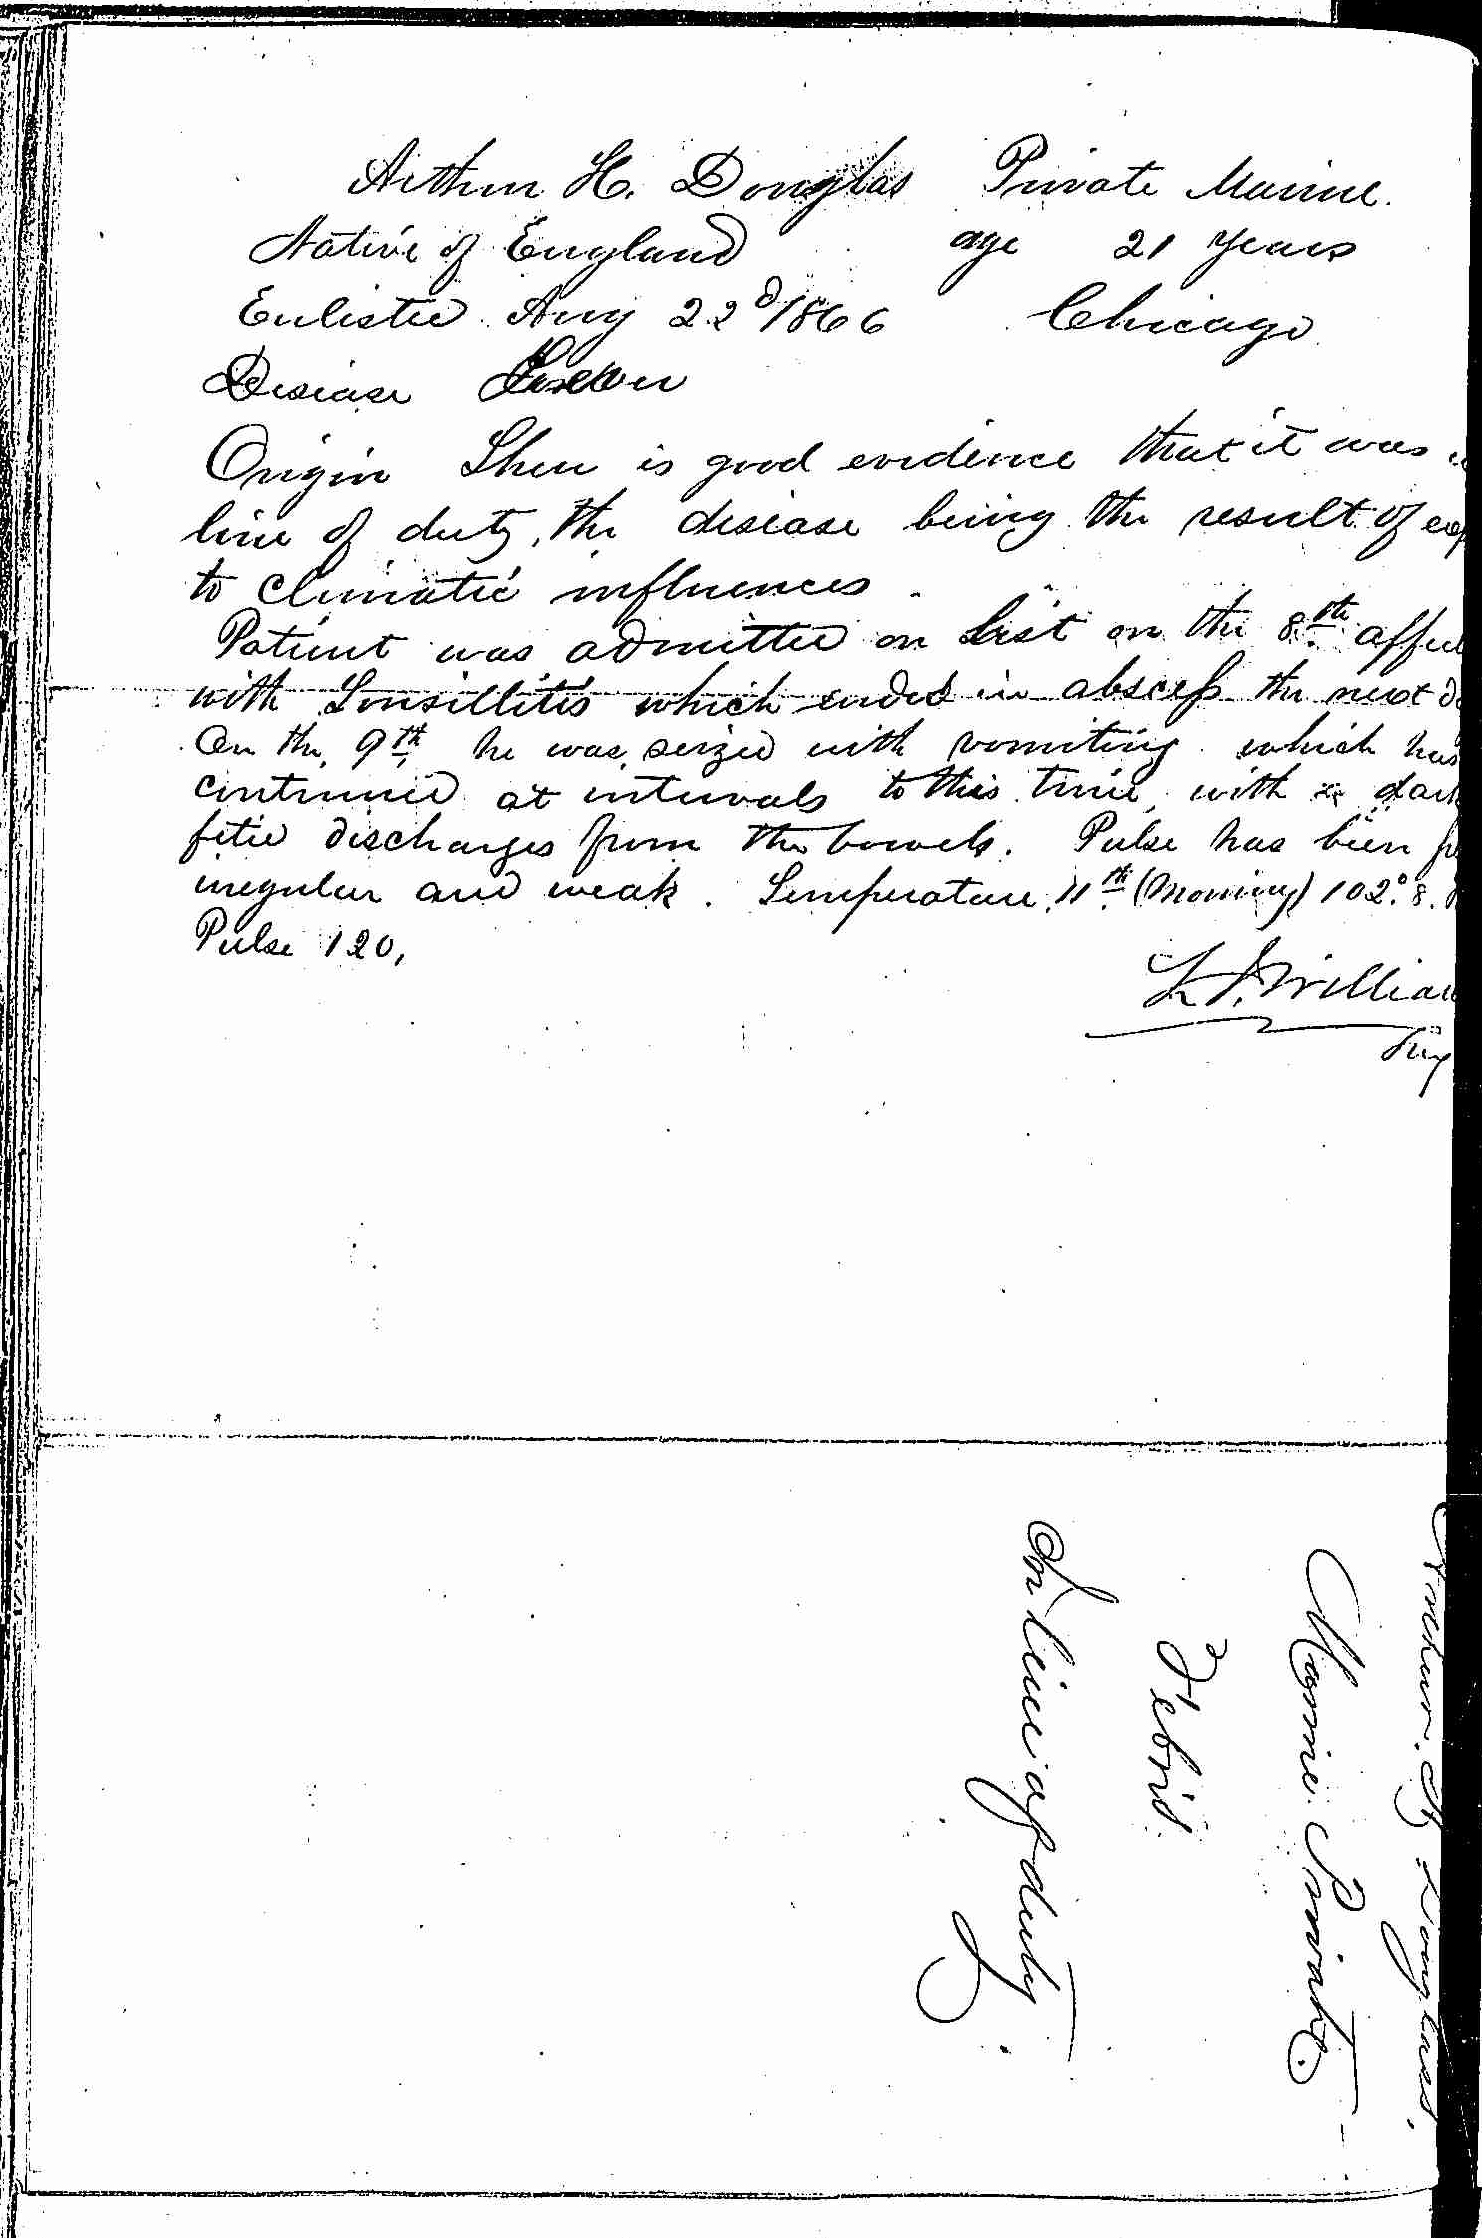 Arthur H. Douglas Private Marine.
Native of England age 21 Years
Enlisted Aug 22d 1866 Chicago
Disease
Origin There is good evidence that it was
line of duty, the disease being the result of
to climatic influences.
Patient was admitted on list on the 8th
with Tonsillitis which ended in abscess the next
On the 9th he was seized with vomiting which has
continued at intervals to this time, with
fetid discharges from the bowels. Pulse has been
irregular and weak. Temperature 11th (Morning) 102°.8.
Pulse 120,
Arthur H. Douglass,
Marine Private.
Febris
In line of duty